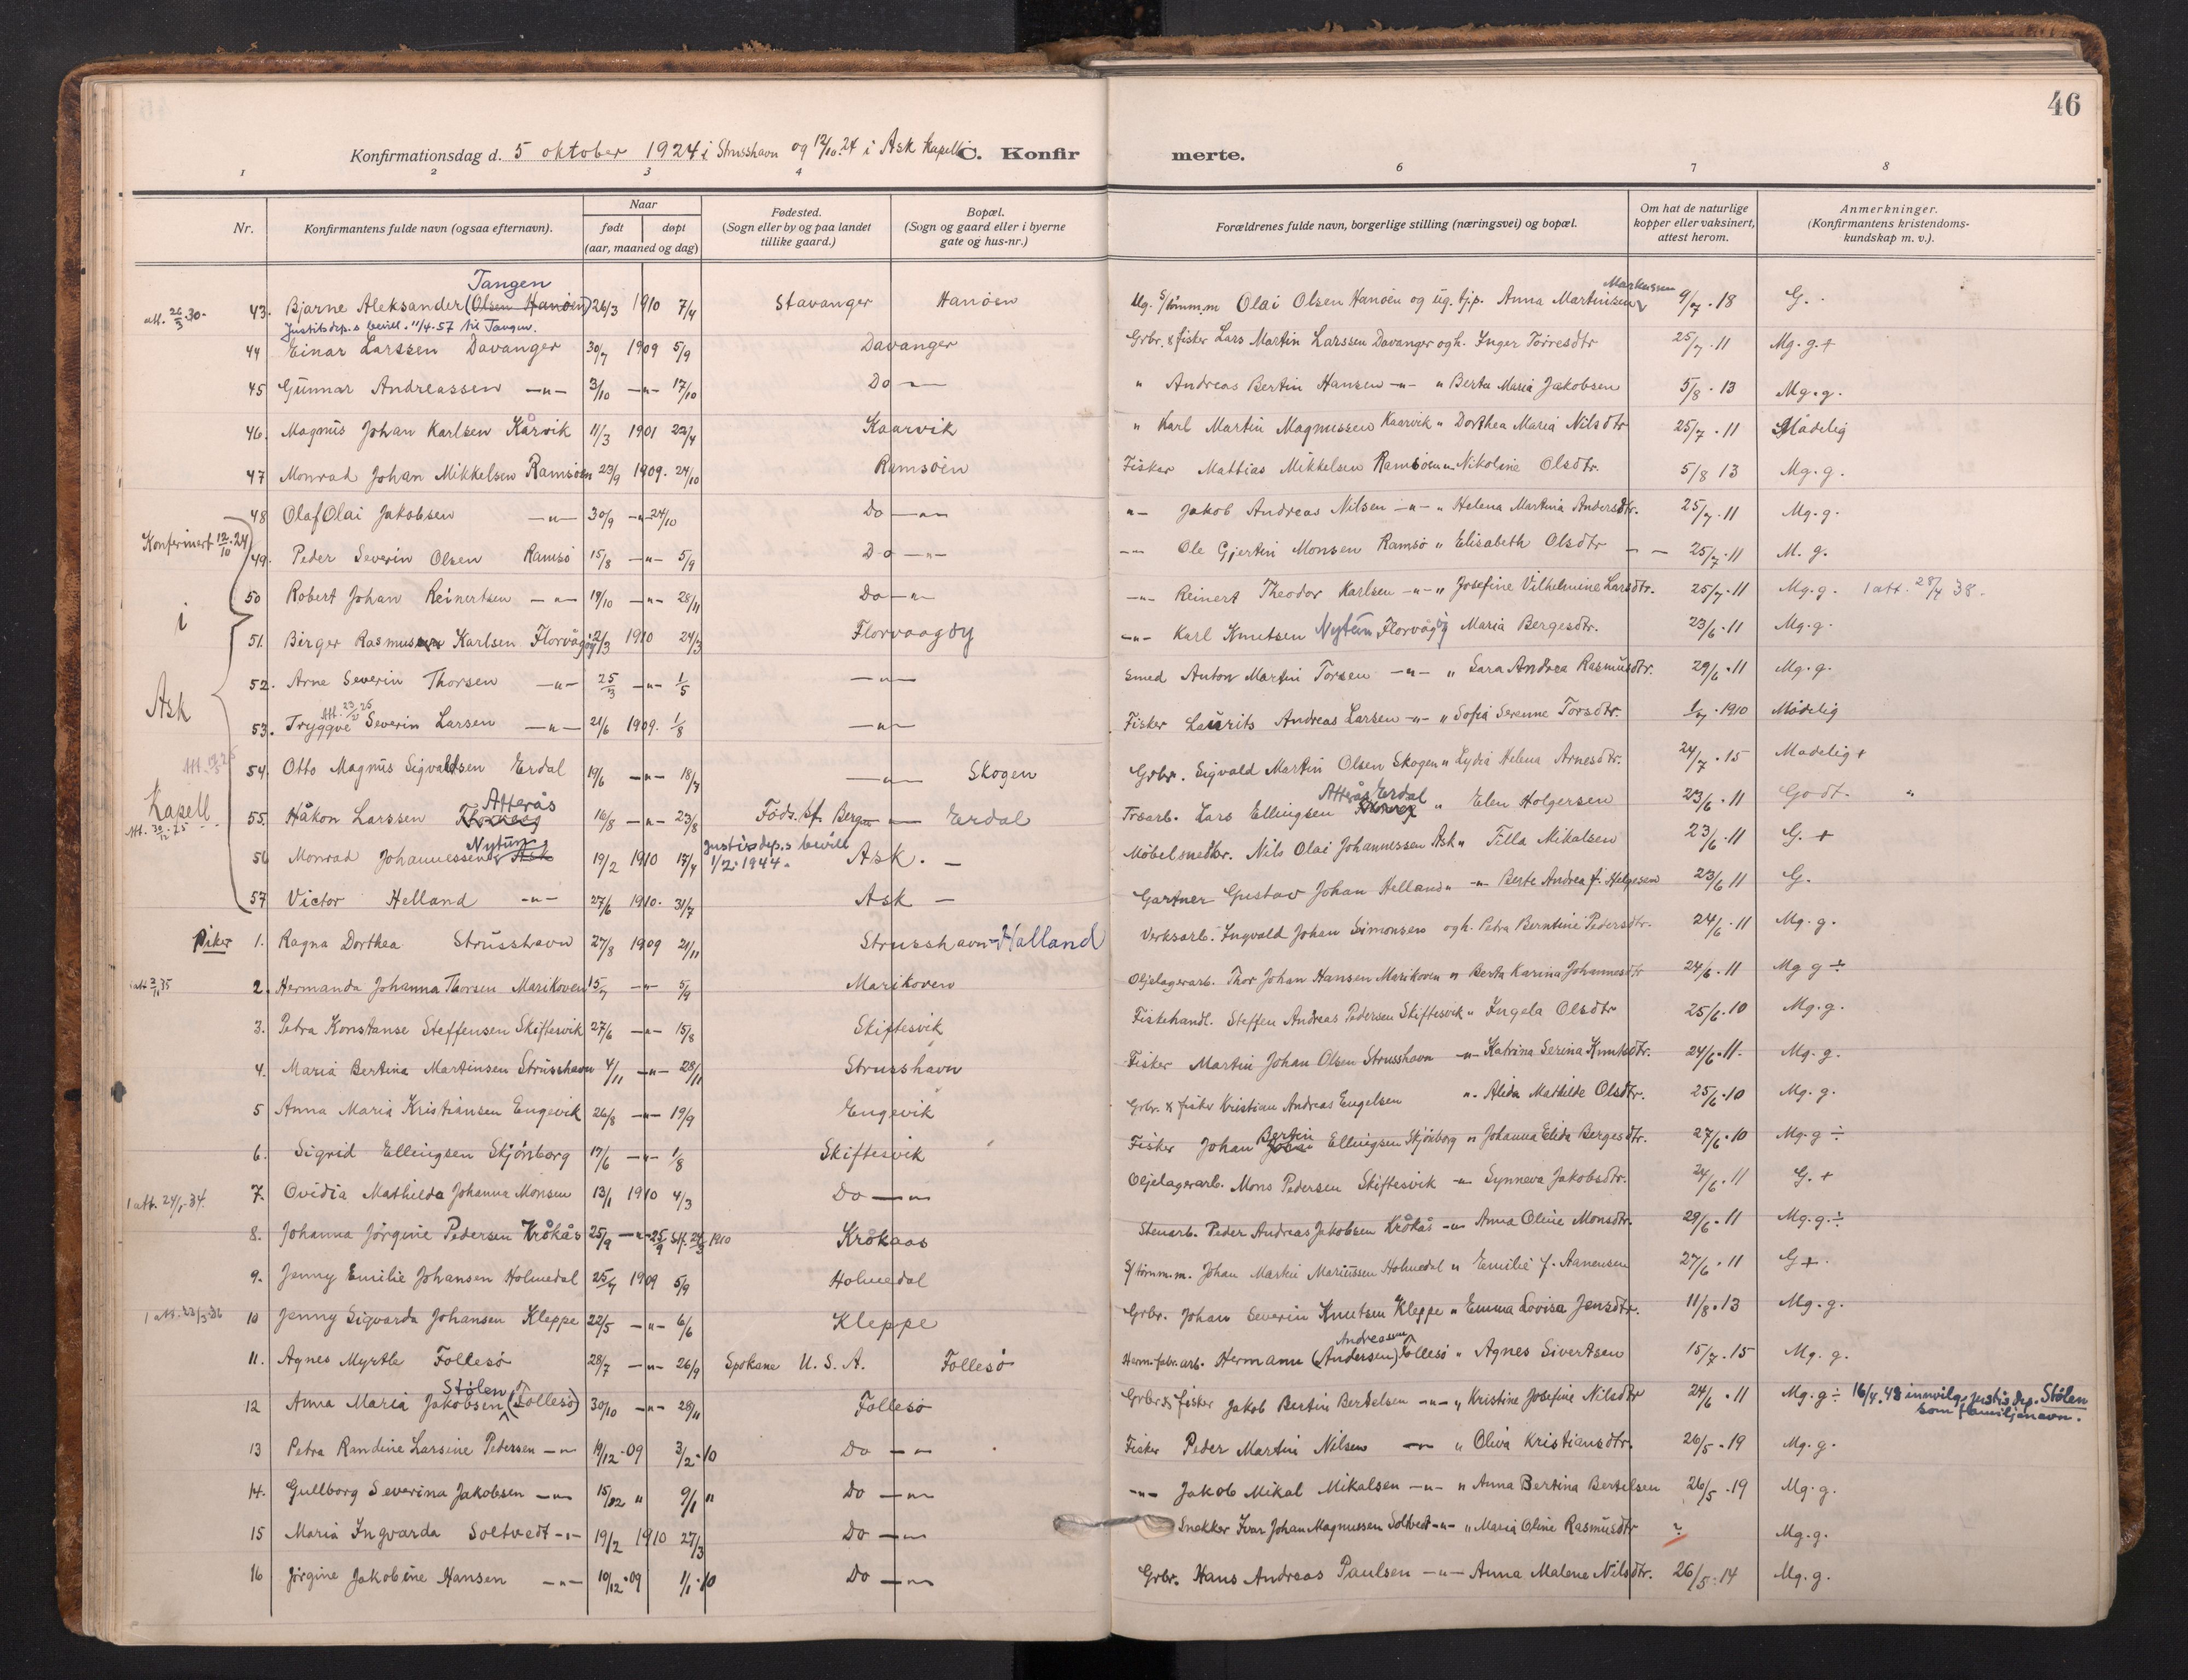 46
Konfirmationsdag d. 5 oktober 1924 i Strusshavn og 12/10.24 i Ask Kapell C. Konfirmerte.
1 2 3 4 6 7 8
Nr. Konfirmantens fulde navn (ogsaa efternavn). Naar født døpt (aar, maaned og dag) Fødested. (Sogn eller by og paa landet tillike gaard.) Bopæl. (Sogn og gaard eller i byerne gate og hus-nr.) Forældrenes fulde navn, borgerlige stilling (næringsvei) og bopæl. Om hat de naturlige kopper eller vaksinert, attest herom. Anmerkninger. (Konfirmantens kristendomskundskap m. v.).
Tangen Markussen
att. 26/3.30. 43. Bjarne Aleksander (Olsen Hanöen) 26/3 1910 7/4 Stavanger Hanöen Ug. S/tömm.m Olai Olsen Hanöen og ug. tjp. Anna Martinsen 9/7.18 G.
Justitsdep.s bevill. 11/4.57 til Tangen.
44 Einar Larssen Davanger 30/7 1909 5/9 Davanger Grbr. & fisker Lars Martin Larssen Davanger og h. Inger Torresdtr 25/7.11 Mg.g.+
45 Gunnar Andreassen —"— 3/10 —"— 17/10 Do —"— " Andreas Bertin Hansen —"— " Berta Maria Jakobsen 5/8.13 Mg.g.
46. Magnus Johan Karlsen Kårvik 11/3 1901 22/4 Kaarvik " Karl Martin Magnussen Kaarvik " Dorthea Maria Nilsdtr 25/7.11 Mådelig
47 Monrad Johan Mikkelsen Ramsöen 23/9 1909. 24/10 Ramsöen Fisker Mathias Mikkelsen Ramsöen " Nikoline Olsdtr. 5/8 13 Mg.g.
48 Olaf Olai Jakobsen —"— 30/9 —"— 24/10 Do —"— "— Jakob Andreas Nilsen —"— " Helena Martina Andersdtr. 25/7.11 Mg.g.
Konfirmert 12/10.24 i Ask Kapell
49. Peder Severin Olsen Ramsö 15/8 —"— 5/9 Do —"— —"— Ole Gjertin Monsen Ramsö " Elisabeth Olsdtr 25/7.11 M.g.
50 Robert Johan Reinertsen —"— 19/10 —"— 28/11 Do —"— —"— Reinert Theodor Karlsen —"— " Josefine Vilhelmine Larsdtr. 25/7.11 Mg.g. 1 att. 28/4 38.
51. Birger Rasmus Karlsen Florvågöy 2/3 1910 24/3 Florvaagöy —"— Karl Knutsen Nytun Florvåg og Maria Bergesdtr. 23/6.11 Mg.g.
52. Arne Severin Thorsen —"— 25/3 —"— 1/5 —"— Smed Anton Martin Torsen —"— " Sara Andrea Rasmusdtr. 29/6.11 Mg.g.
Att. 23/2 26
53. Tryggve Severin Larsen —"— 21/6 1909. 1/8 —"— Fisker Laurits Andreas Larsen —"— " Sofia Serenne Torsdtr. 1/7.1910 Mådelig
54. Otto Magnus Sigvaldsen Erdal 19/6 —"— 18/7 —"— Skogen Grbr. Sigvald Martin Olsen Skogen " Lydia Helena Arnesdtr. 24/7.15 Madelig +
Att. 30/12.25 55. Håkon Larssen Atterås 16/8 —"— 23/8 Föds.st. Bergen — Erdal Trsarb. Lars Ellingsen Atterås Erdal " Elen Holgersen 23/6.11 Godt.
56 Monrad Johannessen Ask Nytun 19/2 1910 17/4 Justisdep.s bevill 1/2-1944. Ask. — Möbelsnedkr. Nils Olai Johannessen Ask " Tilla Mikalsen 23/6.11 G. +
57 Victor Helland —"— 27/6 1910. 31/7 Ask — Gartner Gustav Johan Helland " —"— Berte Andrea f. Helgesen 23/6 11 G.
Piker 1. Ragna Dorthea Strusshavn 27/8 1909 21/11 Strusshavn - Halland Verksarb. Ingvald Johan Simonsen og h. Petra Berntine Pedersdtr. 24/6.11 Mg.g.
att 3/11 35 2. Hermanda Johanna Thorsen Marikoven 15/7 —"— 5/9 Marikoven Oljelagerarb. Thor Johan Hansen Marikoven " Berta Karina Johannesdtr 24/6.11 Mg g ÷
3. Petra Konstanse Steffensen Skiftesvik 27/6 —"— 15/8 Skiftesvik Fiskehandl. Steffen Andreas Pedersen Skiftesvik " Ingela Olsdtr 25/6.10 Mg.g.
4. Maria Bertina Martinsen Strusshavn 4/11 —"— 28/11 Strusshavn Fisker Martin Johan Olsen Strusshavn —"— Katrina Serina Knutsdtr. 24/6.11. Mg.g.
5 Anna Maria Kristiansen Engevik 26/8 —"— 19/9 Engevik Grbr. & fisker Kristian Andreas Engelsen ". Alida Mathilde Olsdtr. 25/6.10 Mg.g.
6. Sigrid Ellingsen Skjönborg 17/6 —"— 1/8 Skiftesvik Fisker Johan Bertin Ellingsen Skjönborg " Johanna Elida Bergesdtr. 27/6.10 Mg.g ÷
1 att. 24/1.34. 7. Ovidia Mathilda Johanna Monsen 13/1 1910 4/3 Do —"— Oljelagerarb. Mons Pedersen Skiftesvik —"— Synneva Jakobsdtr. 24/6.11 G. +
8. Johanna Jörgine Pedersen Kråkås 25/9 —"— 25/9 St. 24/3 1910 Krökaas Stenarb. Peder Andreas Jakobsen Kråkås —"— Anna Oline Monsdtr. 29/6.11 Mg.g.÷
9. Jenny Emilie Johansen Holmedal 25/7 1909 5/9 Holmedal S/tömm.m. Johan Martin Mariussen Holmedal " Emilie f. Aanensen 27/6.11 G +.
1 att. 22/5.36 10 Jenny Sigvarda Johansen Kleppe 22/5 —"— 6/6 Kleppe Grbr. Johan Severin Knutsen Kleppe " Emma Lovisa Jensdtr. 11/8.13 Mg.g.
11. Agnes Myrtle Follesö 28/7 —"— 26/9 Spokane U.S.A. Follesö Herm.fabr.arb. Hermann (Andersen) Andreassen Follesö " Agnes Sivertsen 15/7.15 Mg.g.
12 Anna Maria Jakobsen Stölen (Follesö) 30/10 —"— 28/11 Follesö Grbr & fisker Jakob Bertin Bertelsen —"— " Kristine Josefine Nilsdtr 24/6.11 Mg.g ÷ 16/4.48 innvilg. justisdep. Stölen som familjenavn.
13 Petra Randine Larsine Pedersen —"— 19/12.09 3/2.10 Do —"— Fisker Peder Martin Nilsen —"— " Oliva Kristiansdtr. 26/5.19 Mg.g.
14. Gullborg Severina Jakobsen —"— 15/12 " 9/1 " Do —"— —"— Jakob Mikal Mikalsen —"— " Anna Bertina Bertelsen 26/5.19 Mg.g.
15 Maria Ingvarda Soltvedt —"— 19/2 1910 27/3 Do —"— Snekker Ivar Johan Magnussen Soltvedt —"— " Maria Oline Rasmusdtr ? Mg.g.
16 Jörgine Jakobine Hansen —"— 10/12.09 1/1.10 Do —"— Grbr. Hans Andreas Paulsen —"— Anna Malene Nilsdtr. 26/5.14 Mg.g.